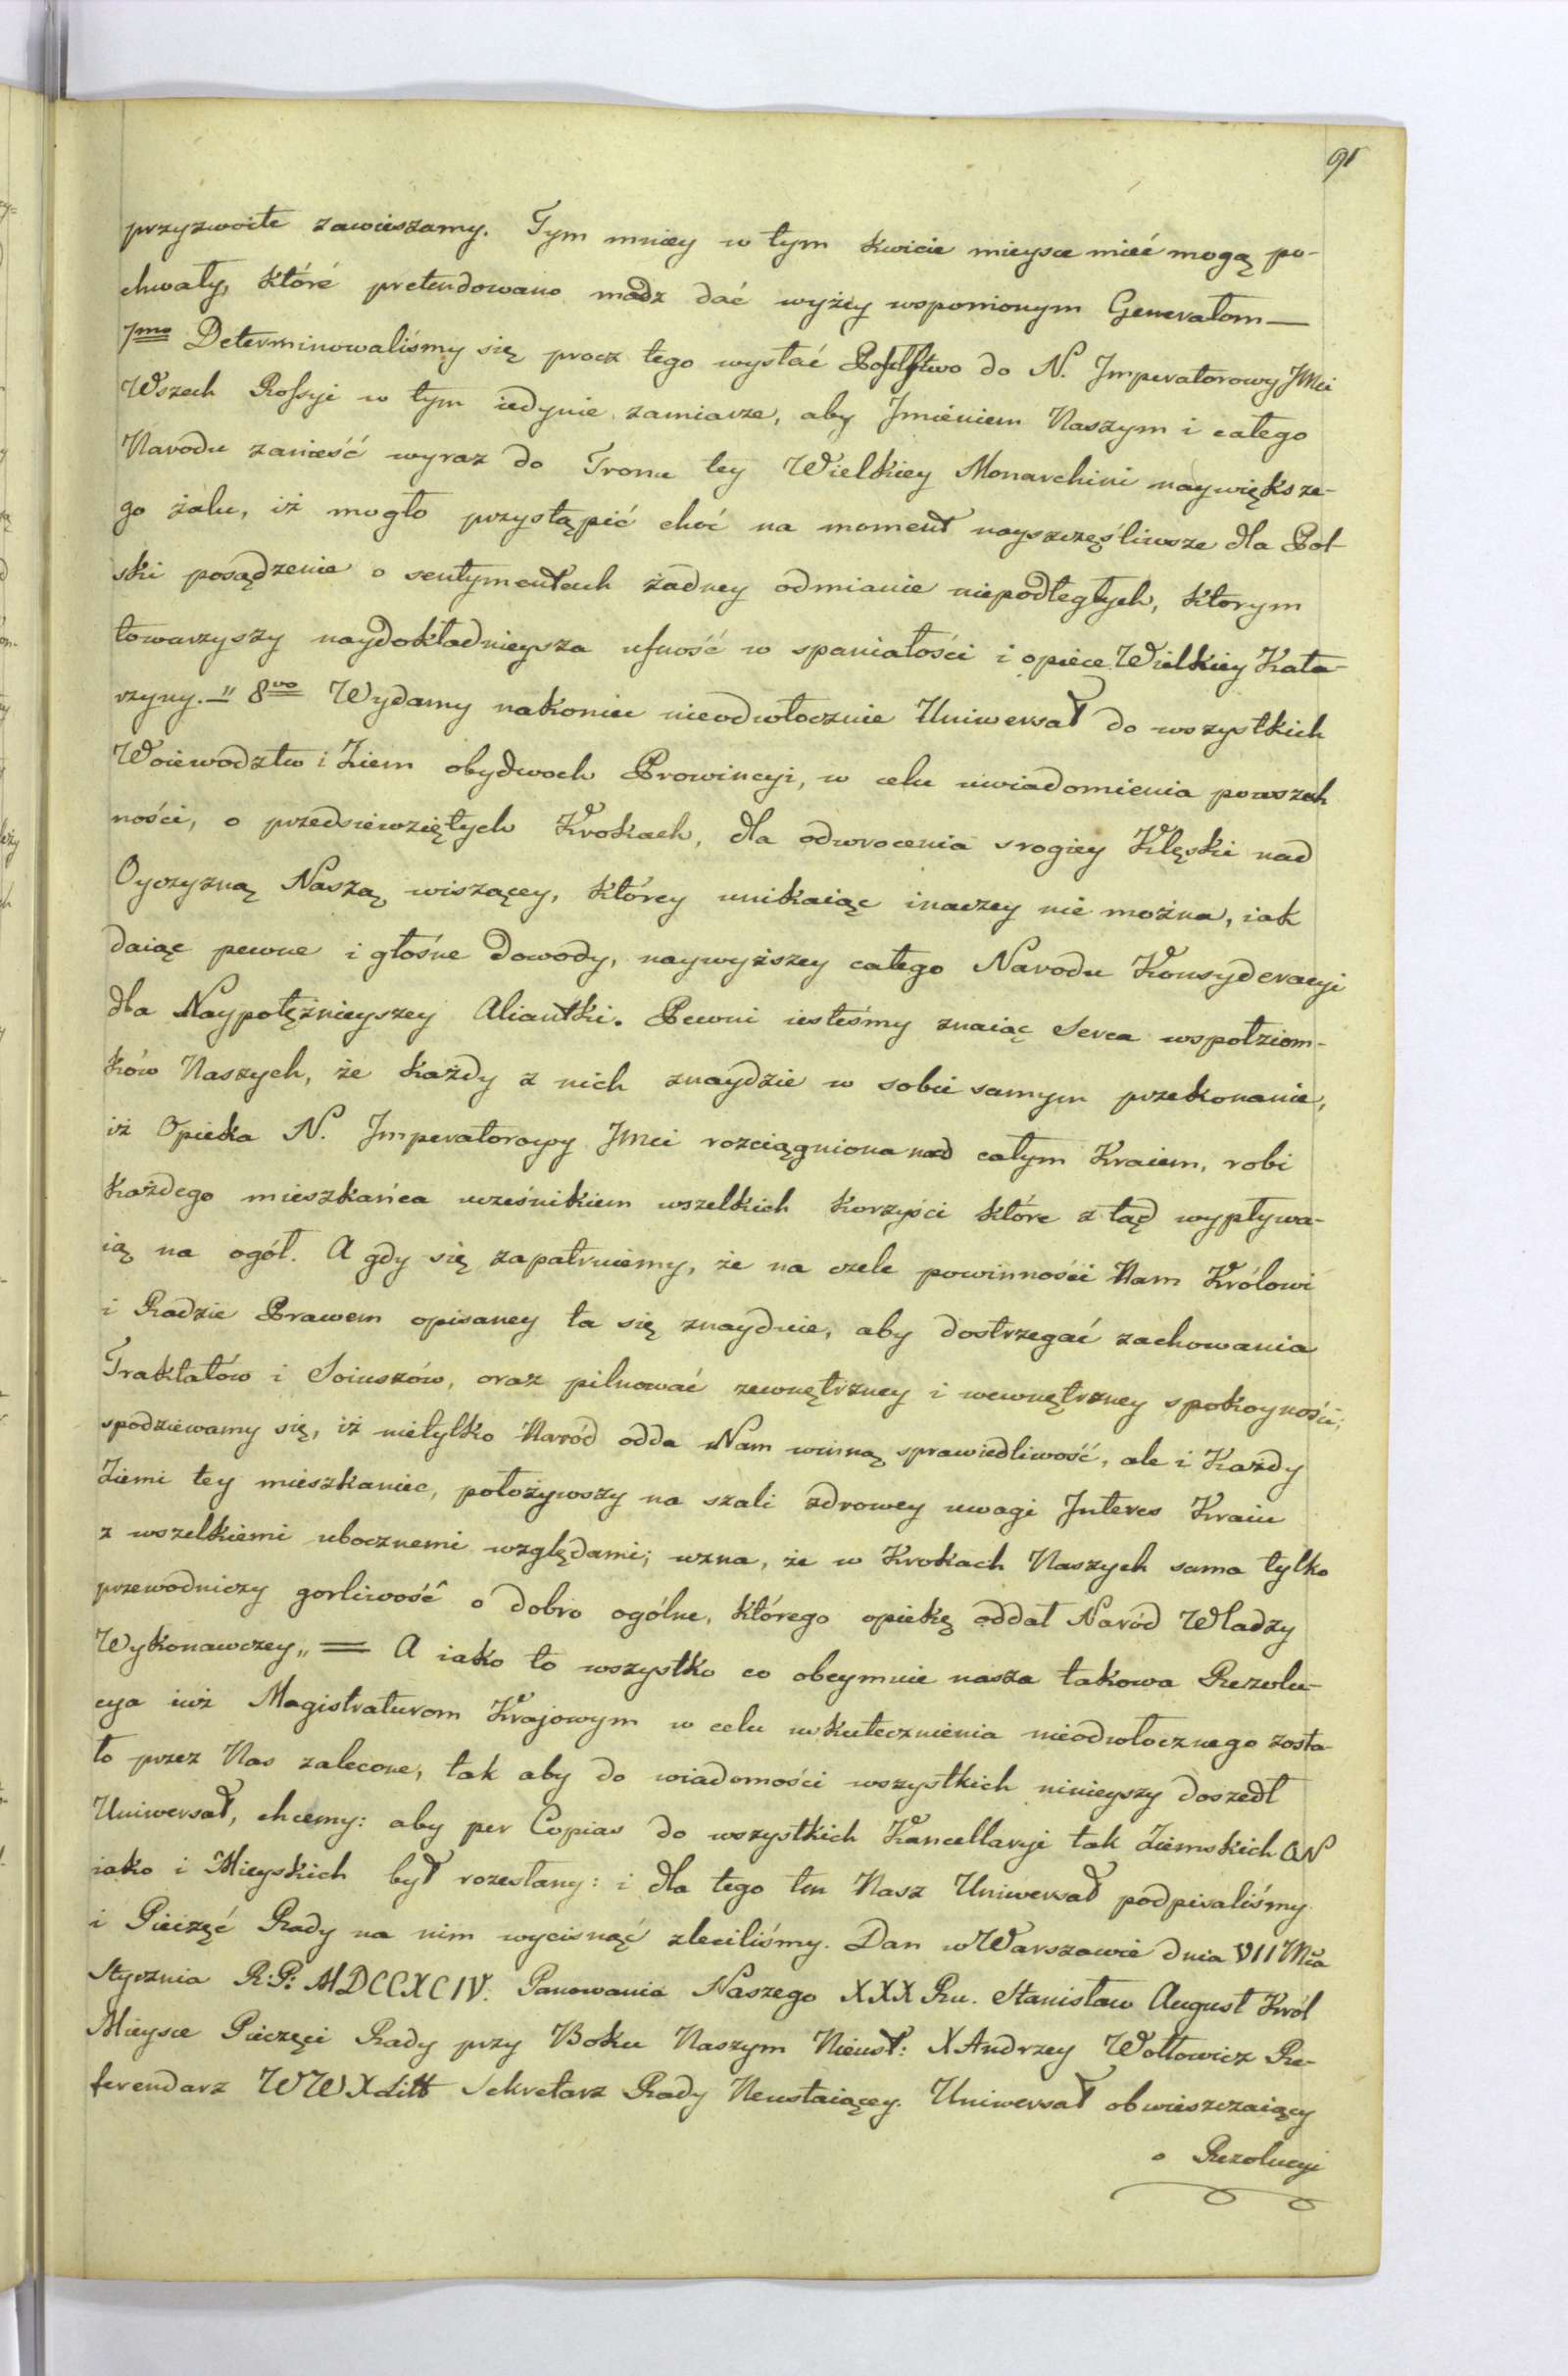 91
przyzwoite zawieszamy. Tym mniey w tym kwicie mieysce mieć mogą po-
chwały, któré pretendowano módz dać wyżey wspomionym Generałom—
7mo Determinowaliśmy się procz tego wysłać Posselstwo do N. Jmperatorowy JMci
Wszech Rossyi w tym iedynie zamiarze, aby Jmieniem Naszym i całego
Narodu zanieść wyraz do Tronu tey Wielkiey Monarchini naywiększe-
go żalu, iż mogło przystąpić choć na moment nayszczęśliwsze dla Pol-
ski posądzenie o sentymentach żadney odmianie niepodległych, którym
towarzyszy naydokładnieysza ufność w spaniałości i opiece Wielkiey Kata-
rzyny. " 8vo Wydamy nakoniec nieodwłocznie Uniwersał do wszystkich
Woiewodztw i Ziem obydwoch Prowincyi, w celu uwiadomienia powszech
ności, o przedsiewziętych Krokach, dla odwrocenia srogiey Klęski nad
Oyczyzną Naszą wiszącey, którey unikaiąc inaczey nie można, iak
daiąc pewne i głośne dowody, naywyższey całego Narodu Konsyderacyi
dla Naypotężnieyszey Aliantki. Pewni iesteśmy znaiąc Serca wspołziom-
ków Naszych, że każdy z nich znaydzie w sobie samym przekonanie,
iż Opieka N. Jmperatorowy JMci rozciągniona nad całym Kraiem, robi
każdego mieszkańca uczesnikiem wszelkich korzyści które z tąd wypływa-
ią na ogół. A gdy się zapatruiemy, że na czele powinności Nam Królowi
i Radzie Prawem opisaney ta się znayduie, aby dostrzegać zachowania
Traktatów i Soiuszów, oraz pilnować zewnętrzney i wewnętrzney spokoyności;
spodziewamy się, iż nietylko Naród odda Nam winną sprawiedliwość, ale i Każdy
Ziemi tey mieszkaniec, położywszy na szali zdrowey uwagi Jnteres Kraiu
z wszelkiemi ubocznemi względami; uzna, że w Krokach Naszych sama tylko
przewodniczy gorliwość o dobro ogólne, którego opiekę oddał Naród Władzy
Wykonawczey„ = A iako to wszystko co obeymuie nasza takowa Rezolu-
cya iuż Magistraturom Krajowym w celu uskutecznienia nieodwłocznego zosta-
ło przez Nas zalecone, tak aby do wiadomości wszystkich ninieyszy doszedł
Uniwersał, chcemy: aby per Copias do wszystkich Kancellaryi tak Ziemskich ON
iako i Mieyskich był rozesłany: i dla tego ten Nasz Uniwersał podpisaliśmy
i Pieczęć Rady na nim wycisnąć zleciliśmy. Dan w Warszawie dnia VII Mca
Stycznia R: P: MDCCXCIV. Panowania Naszego XXX Ru. Stanisław August Król
Mieysce Pieczęci Rady przy Boku Naszym Nieust: X Andrzey Wołłowicz Re-
ferendarz WWXLitt Sekretarz Rady Neustaiącey. Uniwersał obwieszczaiący
o Rezolucyi